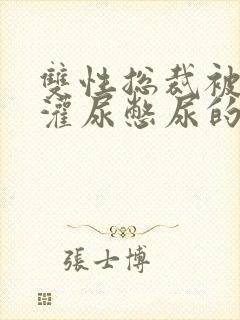 雙性总裁被
灌尿憋尿的
張士博